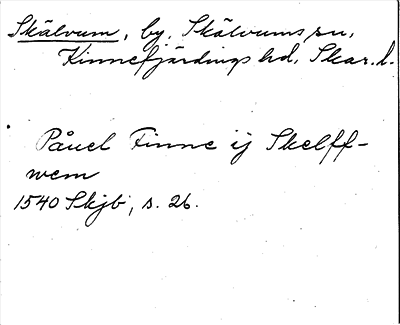 Skälvum, by. Skälvums sn,
Kinnefjärdings hd, Skar. l.
Påuel Finne ij Skelff-
wem
1540 Skjb, s. 26.